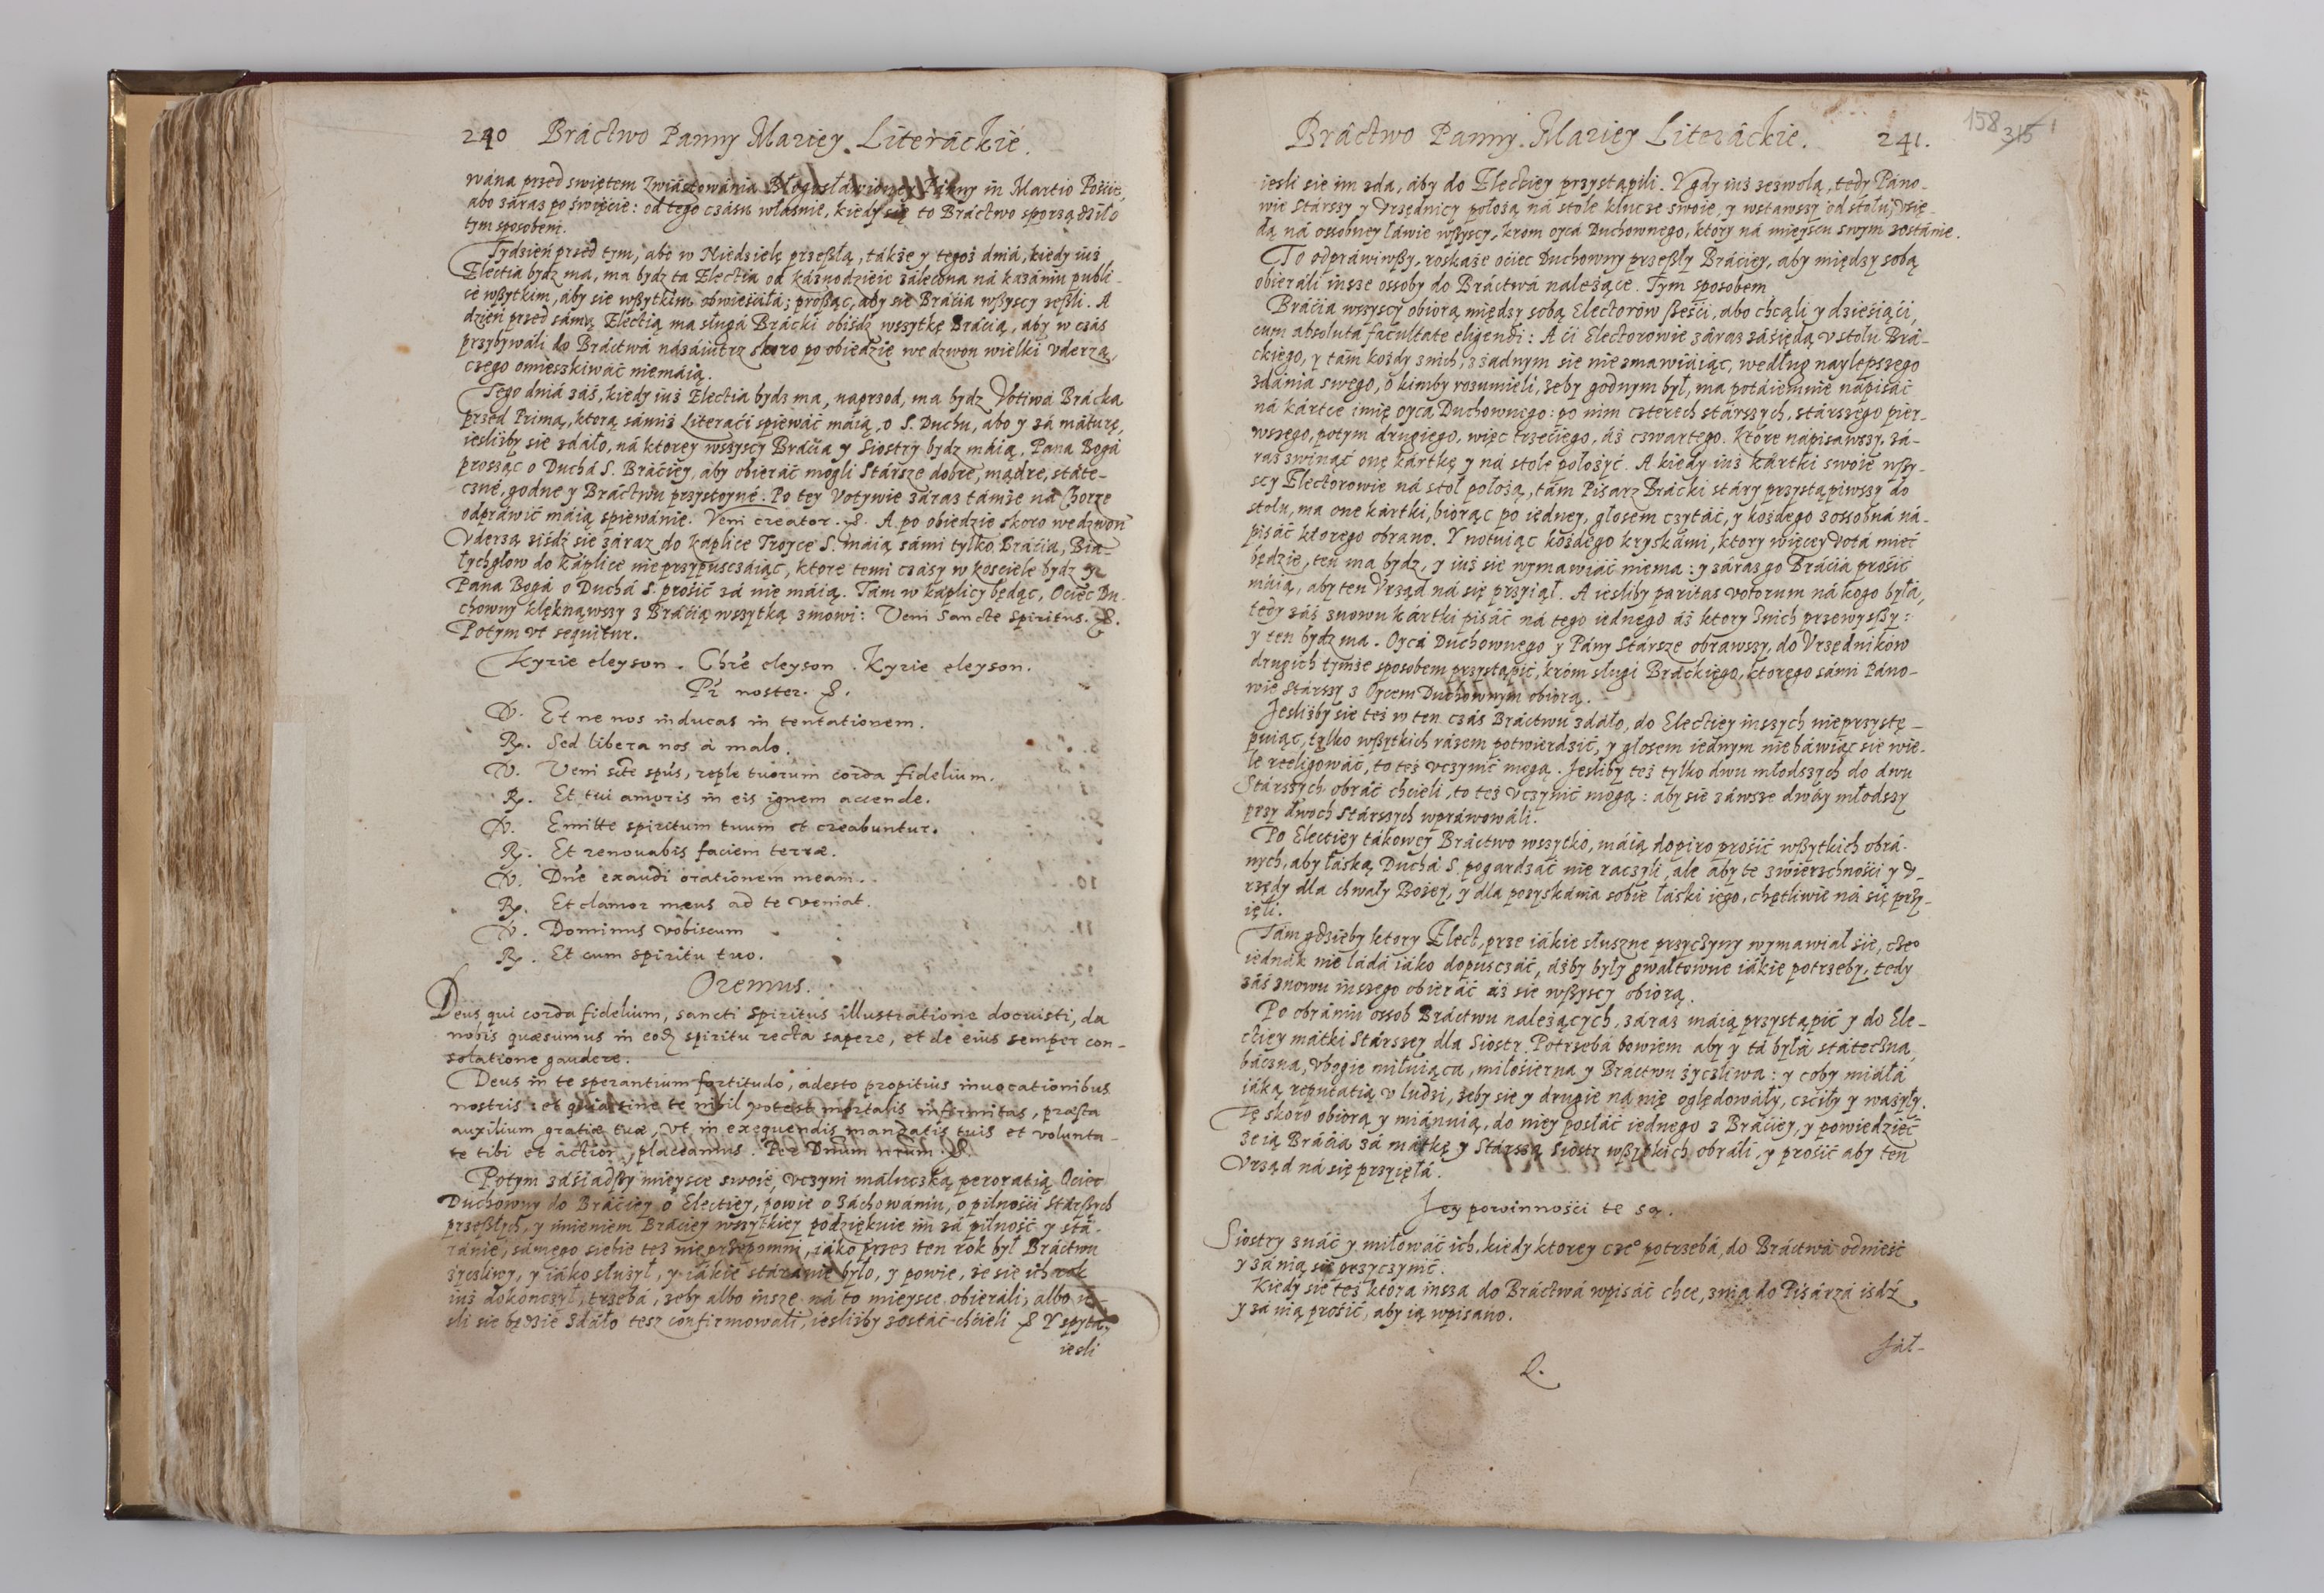 240 Bráctwo Panny Mariey Literáckie.
wána przed swiętem Zwiástowánia Błogosłáwioney Pánny in Martio Poście,
abo záraz po święcie: od tego czásu własnie, kiedy się to Bráctwo sporządziło
tym sposobem.
Tydzień przed tym, abo w Niedzielę przeszłą, tákże y tegoż dniá, kiedy iuż
Electia bydz ma, ma bydz ta Electia od káznodzieie zálecona ná kazániu publi-
ce wszytkim, áby sie wszytkim obwieściáłá; prosząc, aby się Bráćia wszyscy zeszli. A
dzień przed sámą Electią ma sługá Brácki obiśdź wszytkę Bráćią, aby w czás
przybywáli do Bráctwá názáiutrz skoro po obiedzie we dzwon wielki vderzą,
czego omieszkiwáć niemáią.
Tego dniá záś, kiedy iuż Electia bydz ma, naprzod, ma bydz Votiwá Brácka
przed Primą, ktorą sámiż Literaći spiewáć máią, o S. Duchu, abo y zá máturę,
iesliżby sie zdáło, ná ktorey wszyscy Bráćia y Siostry bydz máią, Pana Bogá
prosząc o Duchá S. Bráćiey, áby obieráć mogli Stársze dobre, mądre, státe-
czné, godne y Bráctwu przystoyné. Po tey Votywie záraz támże ná Chorze
odpráwić máią spiewánie. Veni creator. &. A po obiedzie skoro we dzwon
Vderzą ziśdź się záraz do káplice Troyce S. máią sámi tylko Bráćia, Biá-
łychgłow do káplice nieprzypusczáiąc, ktore temi czásy w kośćiele bydz y
Pana Bogá o Duchá S. prośić zá nie máią. Tám w káplicy będąc, Ociec Du-
chowny klęknąwszy z Bráćią wszytką zmowi: Veni Sancte Spiritus. &.
Potym vt sequitur.
Kyrie eleyson. Chr̄e eleyson. Kyrie eleyson.
Pr̄ noster. &.
V. Et ne nos inducas in tentationem.
R. Sed libera nos à malo.
V. Veni scte spūs, reple tuorum corda fidelium.
R. Et tui amoris in eis ignem accende.
V. Emitte spiritum tuum et creabuntur.
R. Et renouabis faciem terræ.
V. Dn̄e exaudi orationem meam.
R. Et clamor meus ad te veniat.
V. Dominus vobiscum
R. Et cum spiritu tuo.
Oremus.
Deus qui corda fidelium, sancti Spiritus illustratione docuisti, da
nobis quæsumus in eod. spiritu recta sapere, et de eius semper con-
solatione gaudere.
Deus in te sperantium fortitudo, adesto propitius inuocationibus
nostris: et quia sine te nihil potest mortalis infirmitas, præsta
auxilium gratiæ tuæ, vt in exequendis mandatis tuis et volunta-
te tibi et action, placeamus. Per Dnūm nrum. &.
Potym záśiadszy mieysce swoié, vczyni máluczką peroratią Ociec
Duchowny do Bráćiey o Electiey, powie o záchowániu, o pilnośći Stárszych
przeszłych, y imieniem Bráciey wszytkiey podziękuie im zá pilność y stá-
ránie, sámego siebie też nie przepomni, iáko przez ten rok był Bráctwu
życzliwy, y iáko służył, y iákie stáránie było, y powie, że się ich rok
iuż dokonczył, trzebá, żeby albo insze ná to mieysce obieráli, albo ie-
sli sie będzie zdáło tesz confirmowali, iesliżby zostáć chcieli &. Y spyta,
iesli
Bráctwo Panny Mariey Literáckie. 241.
158 315
iesli się im zda, áby do Electiey przystąpili. Y gdy iuż zezwolą, tedy Páno-
wie Stárszy y Vrzędnicy położą ná stole klucze swoie, y wstawszy od stołu, vsię-
dą ná ossobney łáwie wszyscy, krom oycá Duchownego, ktory ná mieyscu swym zostánie.
To odpráwiwszy, roskaże ociec Duchowny przeszły Bráciey, aby między sobą
obieráli insze ossoby do Bráctwá należące. Tym sposobem
Bráćia wszyscy obiorą między sobą Electorów sześći, abo chcąli y dziesiąći,
cum absoluta facultate eligendi: A ći Electorowie záraz záśiędą v stołu Brá-
ckiego, y tám kozdy z nich, z żadnym sie nie zmawiáiąc, według naylepszego
zdánia swego, o kimby rozumieli, żeby godnym był, ma potáiemnie nápisáć
ná kártce imię oycá Duchownego: po nim czterech stárszych, stárszego pier-
wszego, potym drugiego, więc trzeciego, áż czwartego. Które nápisawszy, zá-
raz zwinąć onę kártkę y ná stole położyć. A kiedy iuż kártki swoie wszy-
scy Electorowie ná stół położą, tám Pisarz Brácki stáry przystąpiwszy do
stołu, ma one kártki, biorąc po iedney, głosem czytáć, y kozdego z ossobná ná-
pisáć ktorego obrano. Y notuiąc kóżdego kryskámi, ktory więcey vota mieć
będzie, ten ma bydz, y iuż sie wymawiáć niema: y záraz go Bráćia prośić
máią, aby ten Vrząd ná się przyiął. A iesliby paritas votorum ná kogo była,
tedy záś znowu kártki pisáć ná tego iednego áż ktory z nich przewyszszy:
y ten bydz ma. Oycá Duchownego y Pány Stársze obrawszy, do Vrzędników
drugich tymże sposobem przystąpić, króm sługi Bráckiego, ktorego sámi Páno-
wie Stárszy z Oycem Duchownym obiorą.
Jesliżby sie też w ten czás Bráctwu zdáło, do Electiey inszych nieprzystę-
puiąc, tylko wszytkich rázem potwierdzić, y głosem iednym niebáwiąc sie wie-
le reeligowáć, to też vczynić mogą. Jesliby też tylko dwu młodszych do dwu
Stárszych obráć chcieli, to też vczynić mogą: aby sie záwsze dwáy młodszy
przy dwoch Stárszych wpráwowáli.
Po Electiey tákowey Bráctwo wszytko, máią dopiro prośić wszytkich obrá-
nych, aby łáską Duchá S. pogardzáć nie raczyli, ale aby te zwierzchnośći y v-
rzędy dla chwały Bożey, y dla pozyskánia sobie łáski iego, chętliwie ná się przy-
ięli.
Tám gdzieby ktory Elect, prze iákie słuszne przyczyny wymawiał się, cze°
iednák nie ládá iáko dopusczáć, áżby były gwałtowne iákie potrzeby, tedy
záś znowu inszego obieráć áż sie wszyscy obiorą.
Po obrániu ossob Bráctwu należących, záraz máią przystąpić y do Ele-
ctiey mátki Stárszey dla Siostr. Potrzebá bowiem aby y tá byłá státeczna,
báczna, vbogie miłuiąca, miłośierna y Bráctwu życzliwa: y coby miáłá
iáką reputatią v ludzi, żeby sie y drugie ná nię oględowáły, czciły y ważyły.
Tę skoro obiorą y miánuią, do niey posłáć iednego z Bráciey, y powiedzieć
że ią Bráćia zá mátkę y Stárszą Siostr wszytkich obráli, y prośić aby ten
Vrząd ná się przyięłá.
Jey powinnośći te są.
Siostry znáć y miłowáć ich, kiedy ktorey cze° potrzebá, do Bráctwá odnieść
y zá nią się przyczynić.
Kiedy sie też ktora insza do Bráctwá wpisáć chce, z nią do Pisárzá iśdź
y zá nią prośić, aby ią wpisano.
Jał-
Q.